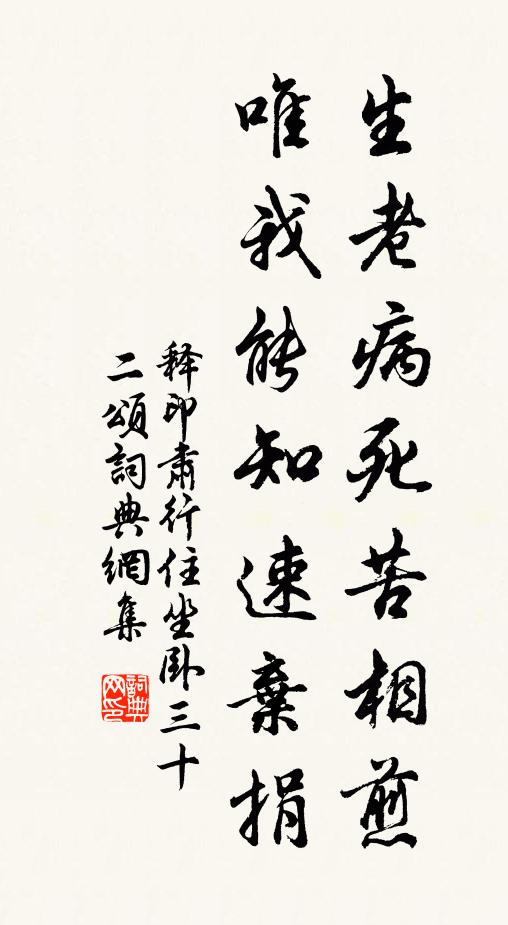 生老病死苦相煎
唯我能知速棄捐
釋印肅行住坐卧三十
二頌詞典網集
詞典
网印